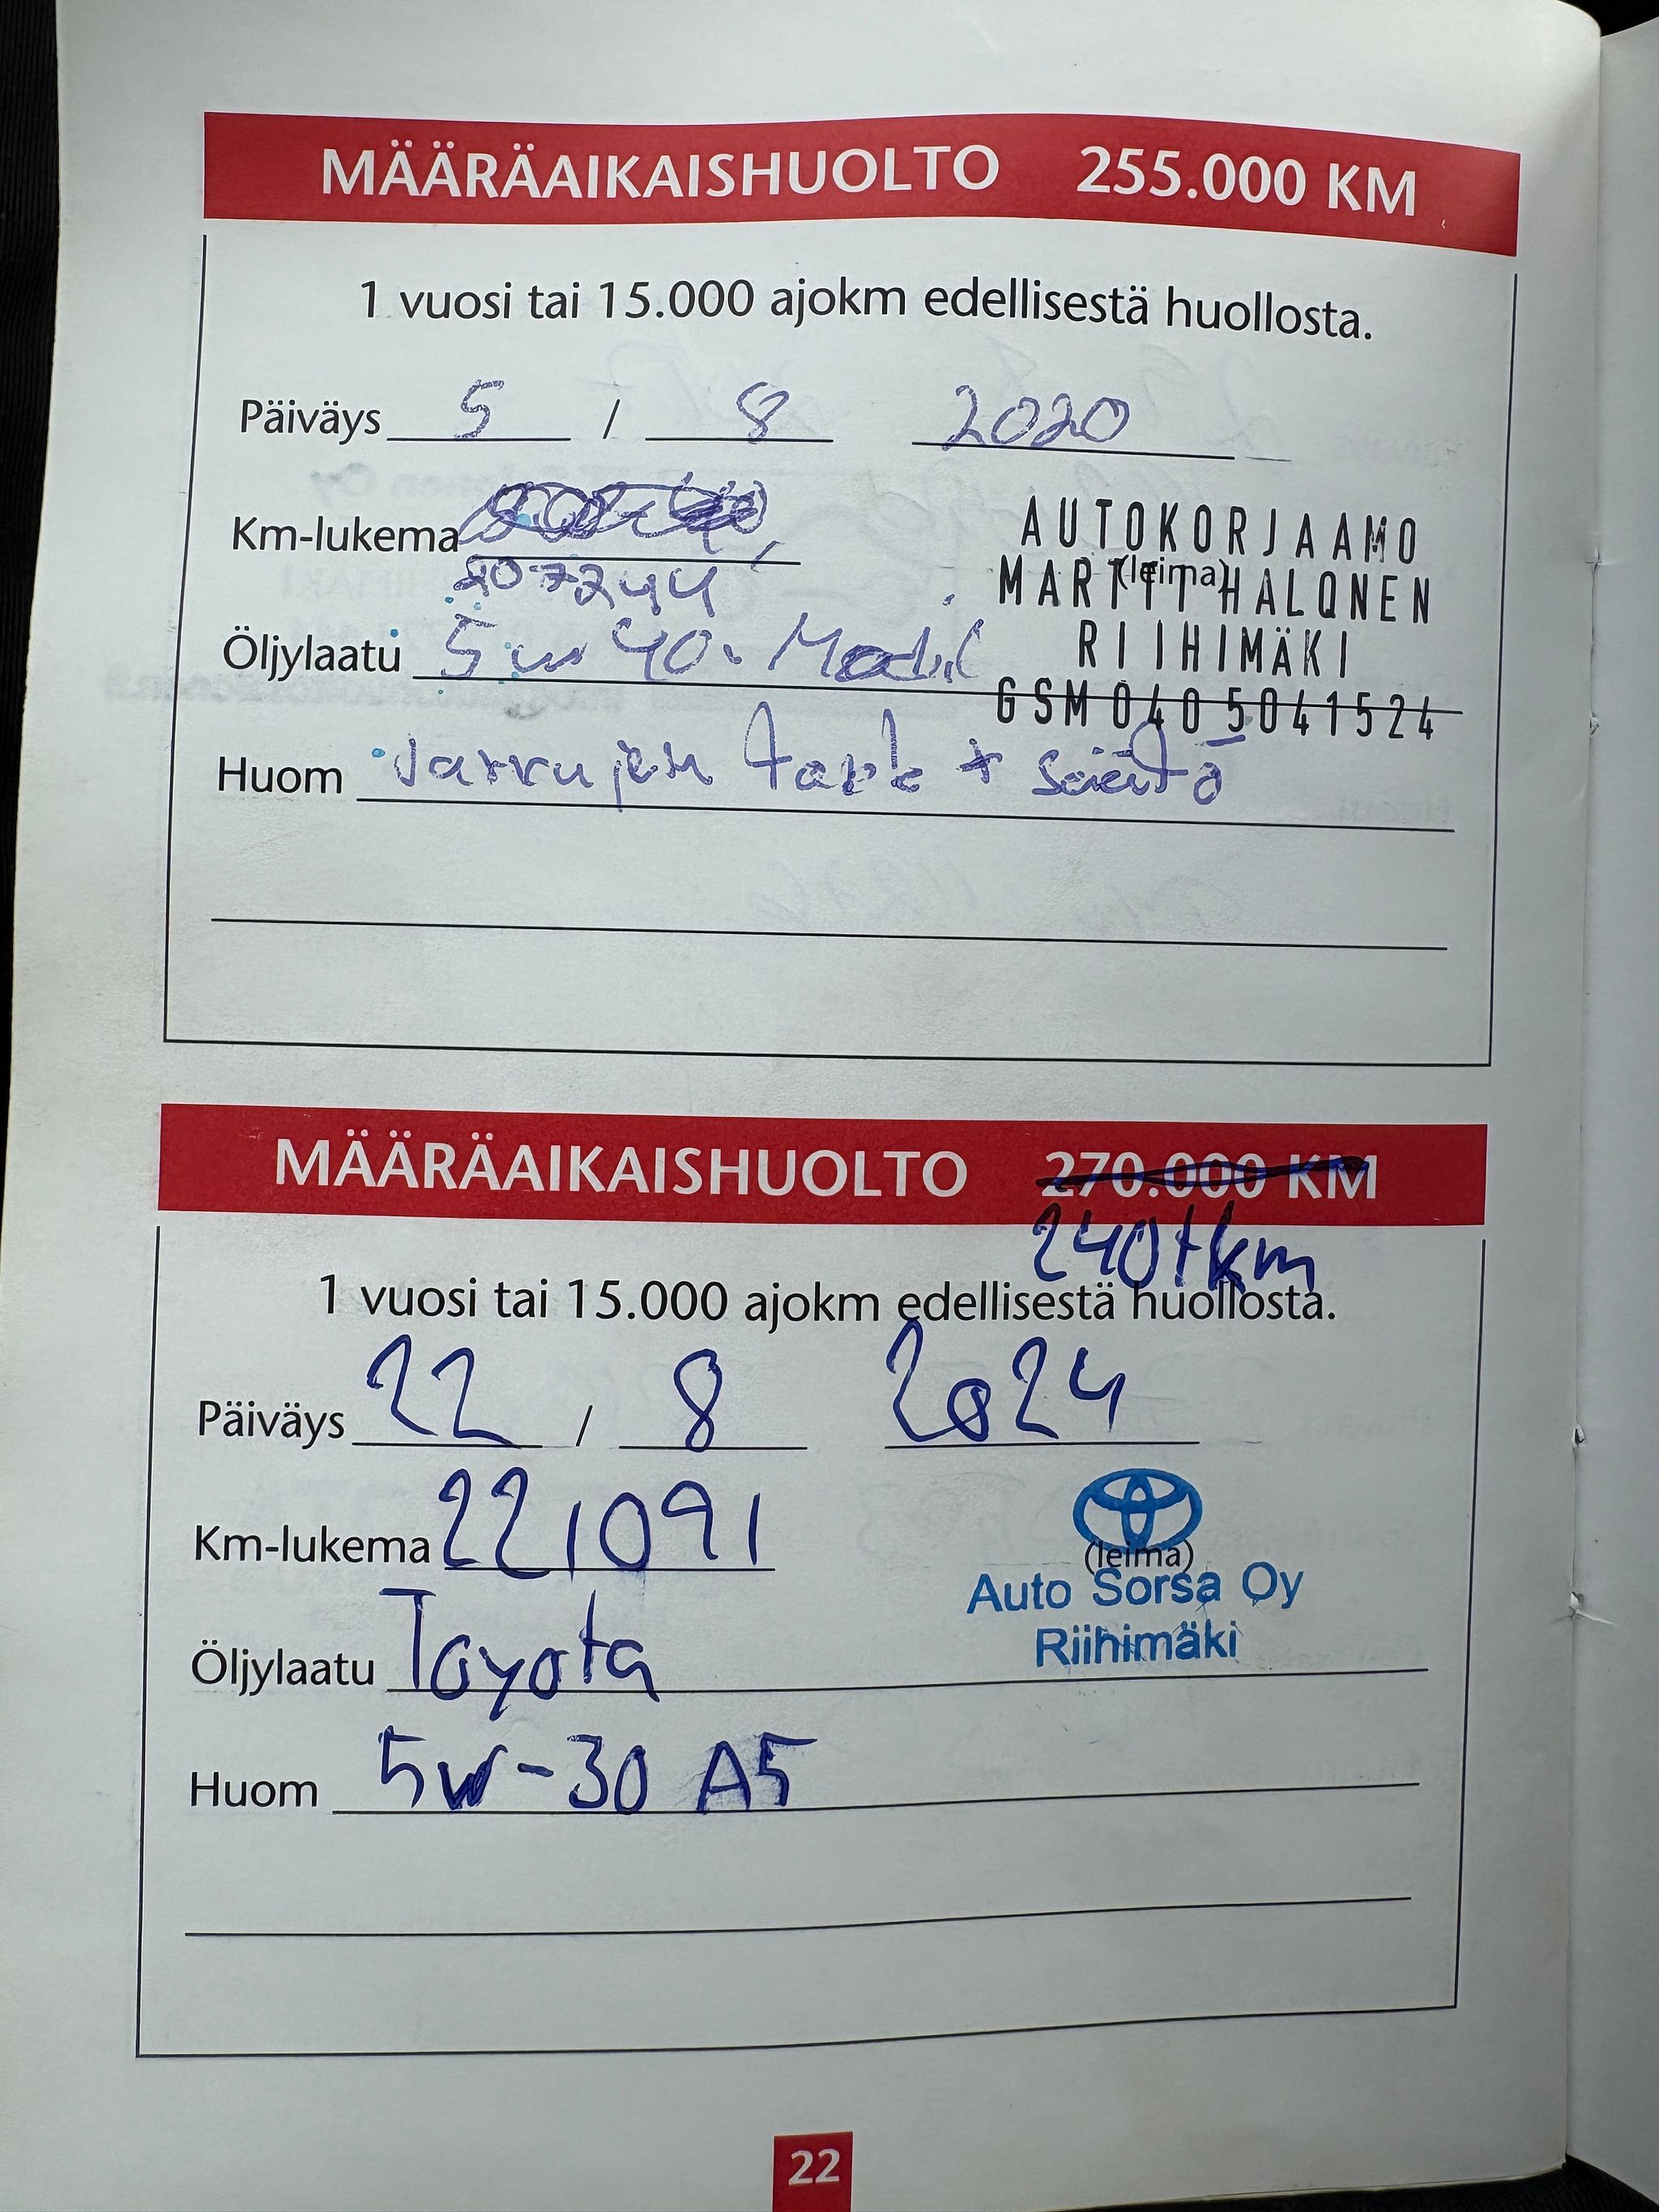 MÄÄRÄAIKAISHUOLTO 255.000 KM
1 vuosi tai 15.000 ajokm edellisestä huollosta.
Päiväys 5 / 8 2020
Km-lukema
207244
AUTOKORJAAMO
(leima)
MARTTI HALONEN
RIIHIMÄKI
Öljylaatu 5w40. Mobil
GSM 040 5041524
Huom Jarrujen tark + säätö
MÄÄRÄAIKAISHUOLTO 270.000 KM
240tkm
1 vuosi tai 15.000 ajokm edellisestä huollosta.
Päiväys 22 / 8 2024
Km-lukema 221091
(leima)
Auto Sorsa Oy
Riihimäki
Öljylaatu Toyota
Huom 5w-30 A5
22